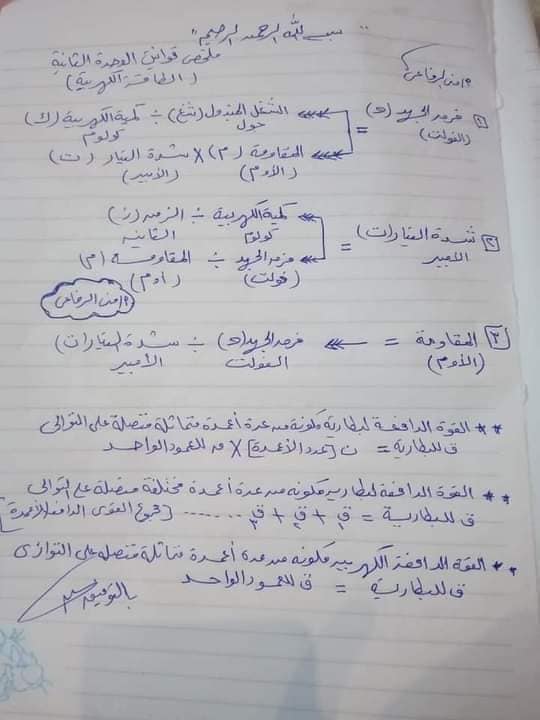 بسم الله الرحمن الرحيم
ملخص قوانين الوحدة الثانية
(الطاقة الكهربية)
أ/منى الرفاعى
١ فرق الجهد (جـ) = الشغل المبذول (شغ) ÷ كمية الكهربية (ك)
(الفولت) جول كولوم
المقاومة (م) X شدة التيار (ت)
(الأوم) (الأمبير)
٢ شدة التيار (ت) = كمية الكهربية ÷ الزمن (ز)
الأمبير كولوم الثانية
فرق الجهد ÷ المقاومة (م)
(فولت) (أوم)
أ/منى الرفاعى
٣ المقاومة = فرق الجهد (جـ) ÷ شدة التيار (ت)
(الأوم) الفولت الأمبير
** القوة الدافعة لبطارية مكونة من عدة أعمدة متماثلة متصلة على التوالى
ق للبطارية = ن [عدد الأعمدة] X ق للعمود الواحد
** القوة الدافعة لبطارية مكونه من عدة أعمدة مختلفة متصلة على التوالى
ق للبطارية = ق١ + ق٢ + ق٣ ........ [مجموع القوى الدافعة للأعمدة]
** القوة الدافعة الكهربيه مكونه من عدة أعمدة متماثلة متصله على التوازى
ق للبطارية = ق للعمود الواحد
بالتوفيق